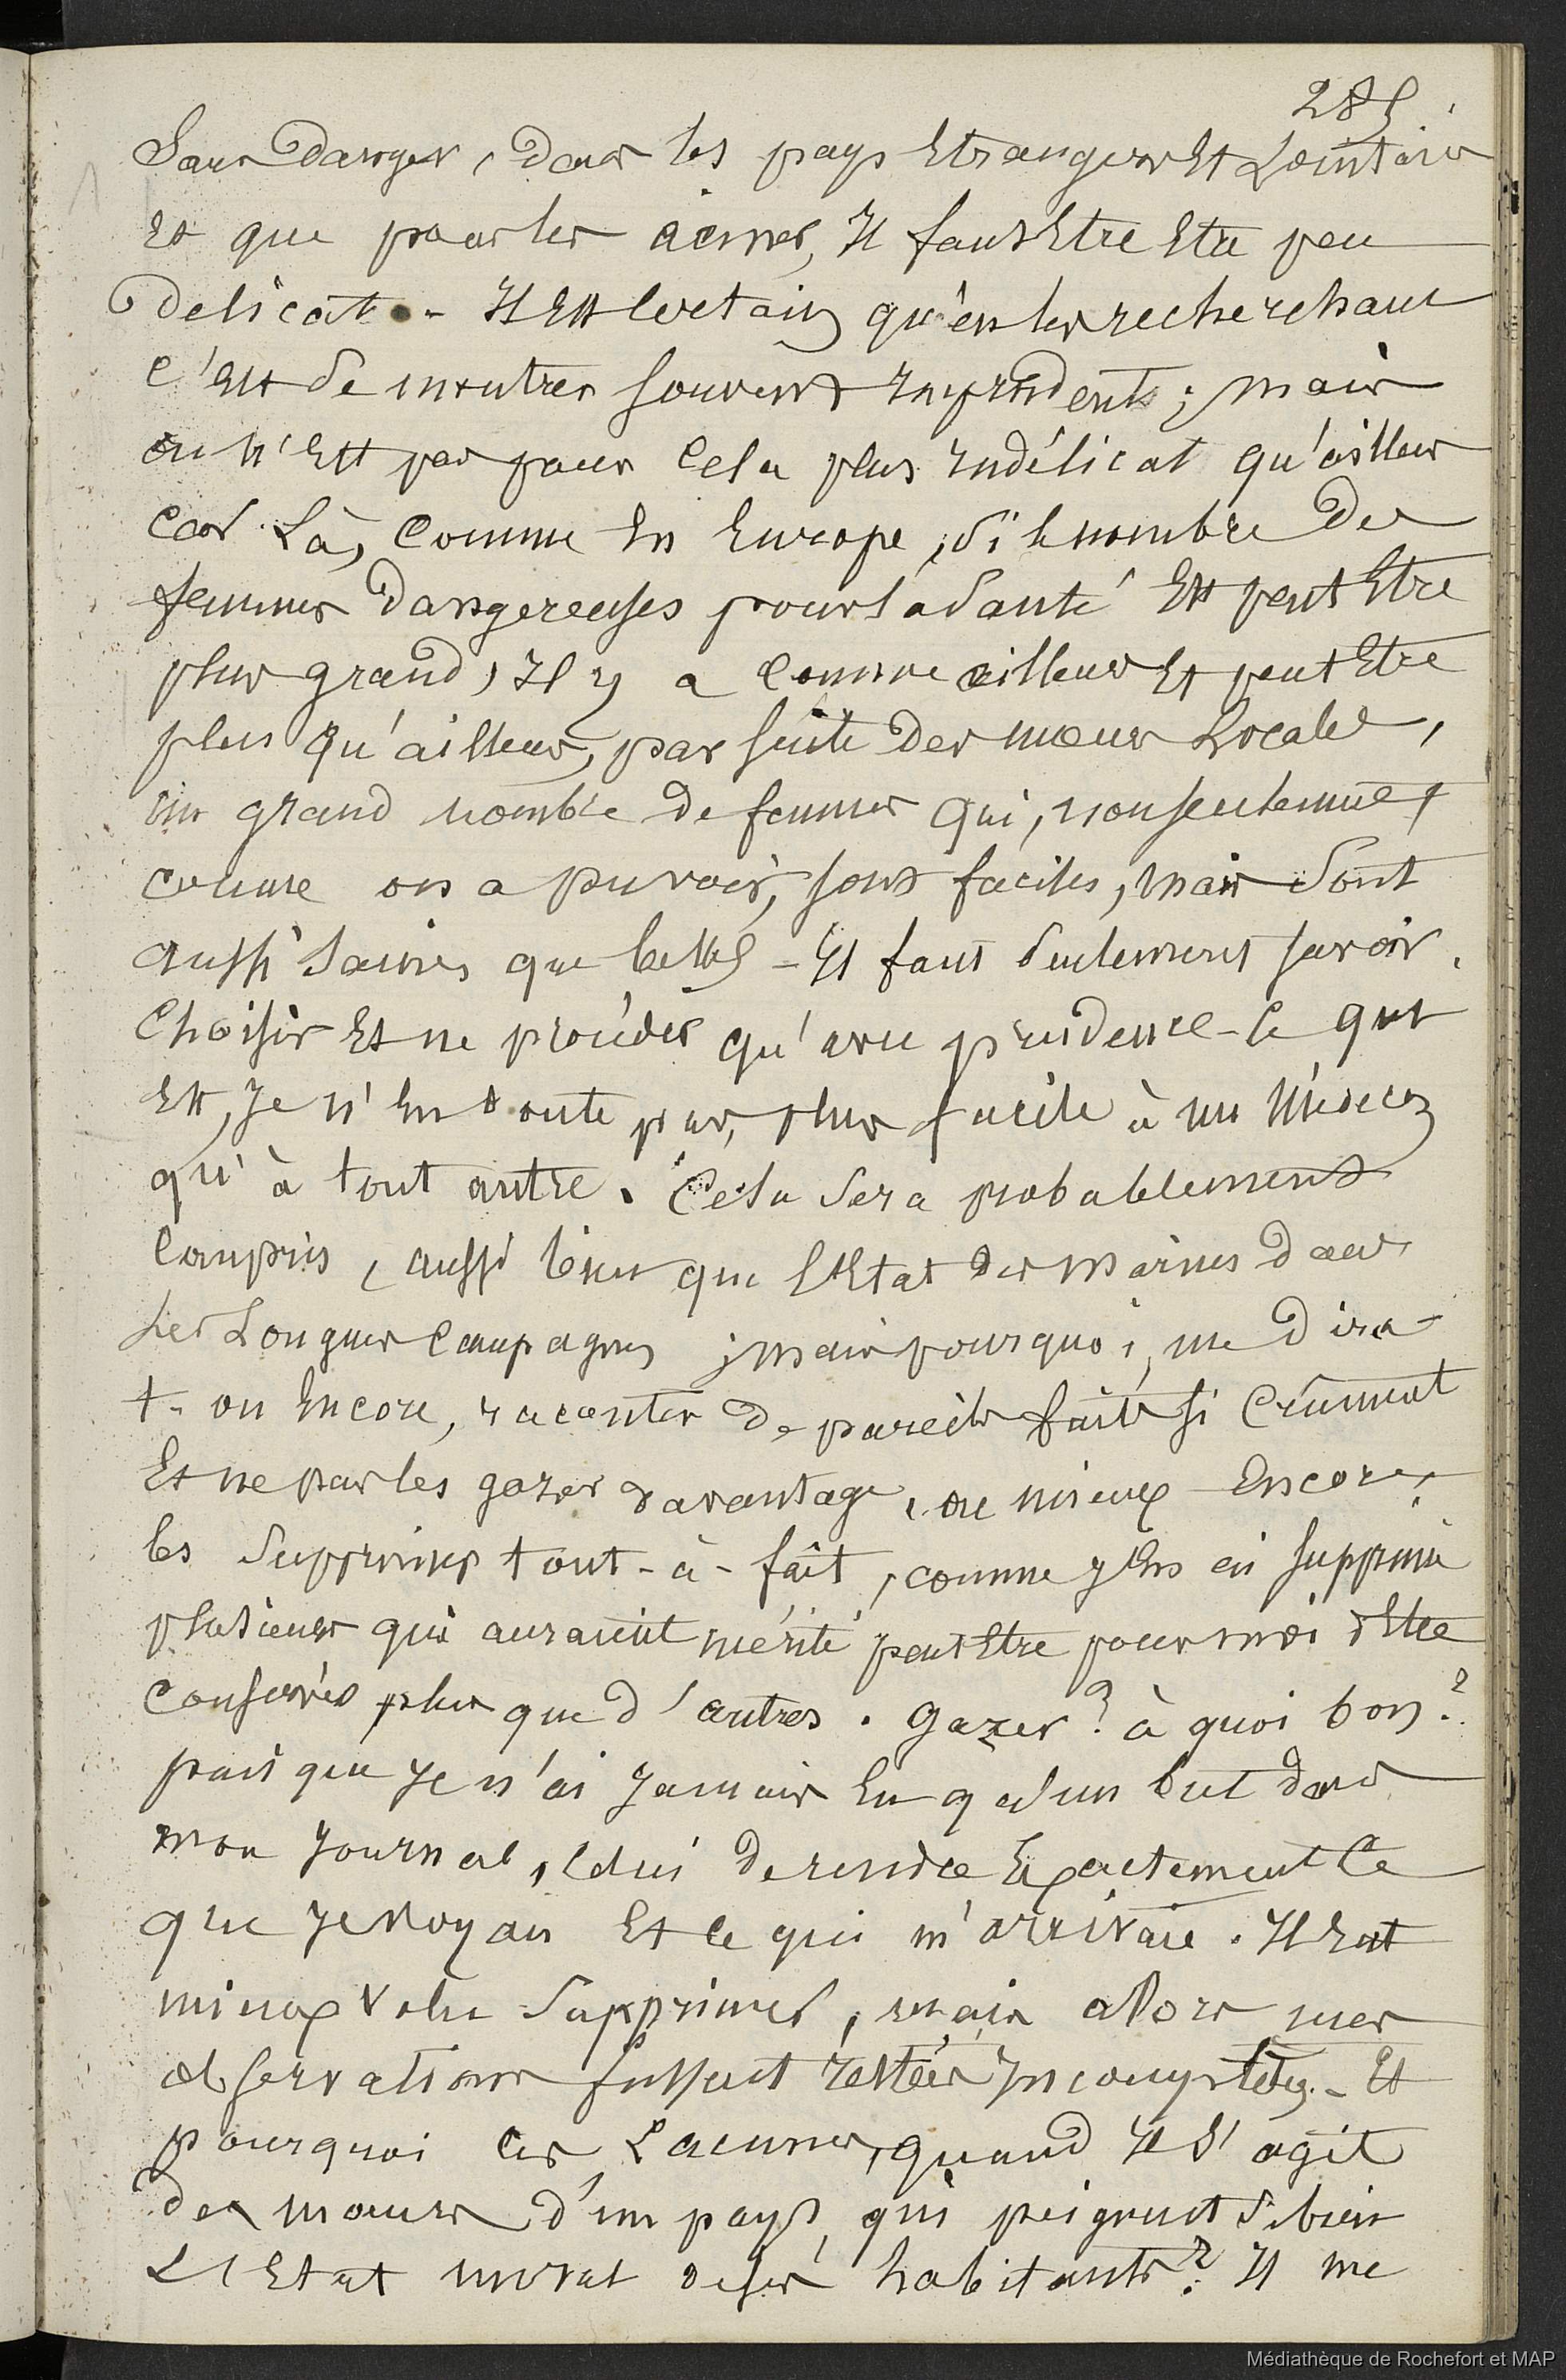 285
Sans danger, dans les pays Etrangers Et Lointains
Et que pour les aimer, Il faut Etre Etre peu
delicat. - Il Est certain qu'en les recherchant
c'Est se montrer souvent Imprudent; mais
on n'Est pas pour cela plus Indélicat qu'ailleurs
car Là, comme En Europe, si le nombre des
femmes dangereuses pour la Santé Est peut Etre
plus grand, Il y a comme ailleurs Et peut Etre
plus qu'ailleurs, par suite des mœurs Locales,
un grand nombre de femmes qui, non seulement,
comme on a pu voir, sont faciles, mais sont
aussi Saines que belles - Il faut seulement savoir
choisir Et ne procéder qu'avec prudence - ce qui
Est, Je n'En doute pas, plus facile à un Médecin
qu'à tout autre. Cela Sera probablement
compris, aussi bien que l'Etat des marins dans
les Longues campagnes; mais pourquoi, me dira-
t-on Encore, raconter de pareils faits si crûment
Et ne pas les gazer davantage, ou mieux Encore,
les Supprimer tout-à-fait, comme J'En ai supprimé
plusieurs qui auraient mérité peut Etre pour moi d'Etre
conservés plus que d'autres. Gazer? à quoi bon?
puisque Je n'ai Jamais Eu qu'un but dans
mon Journal, celui de rendre Exactement ce
que Je voyais Et ce qui m'arrivait. Il Eut
mieux valu Supprimer, mais alors mes
observations fussent restées Incomplètes. - Et
pourquoi ces Lacunes, quand Il s'agit
des mœurs d'un pays, qui peignent si bien
L'Etat moral de ses habitants? Il me
Médiathèque de Rochefort et MAP